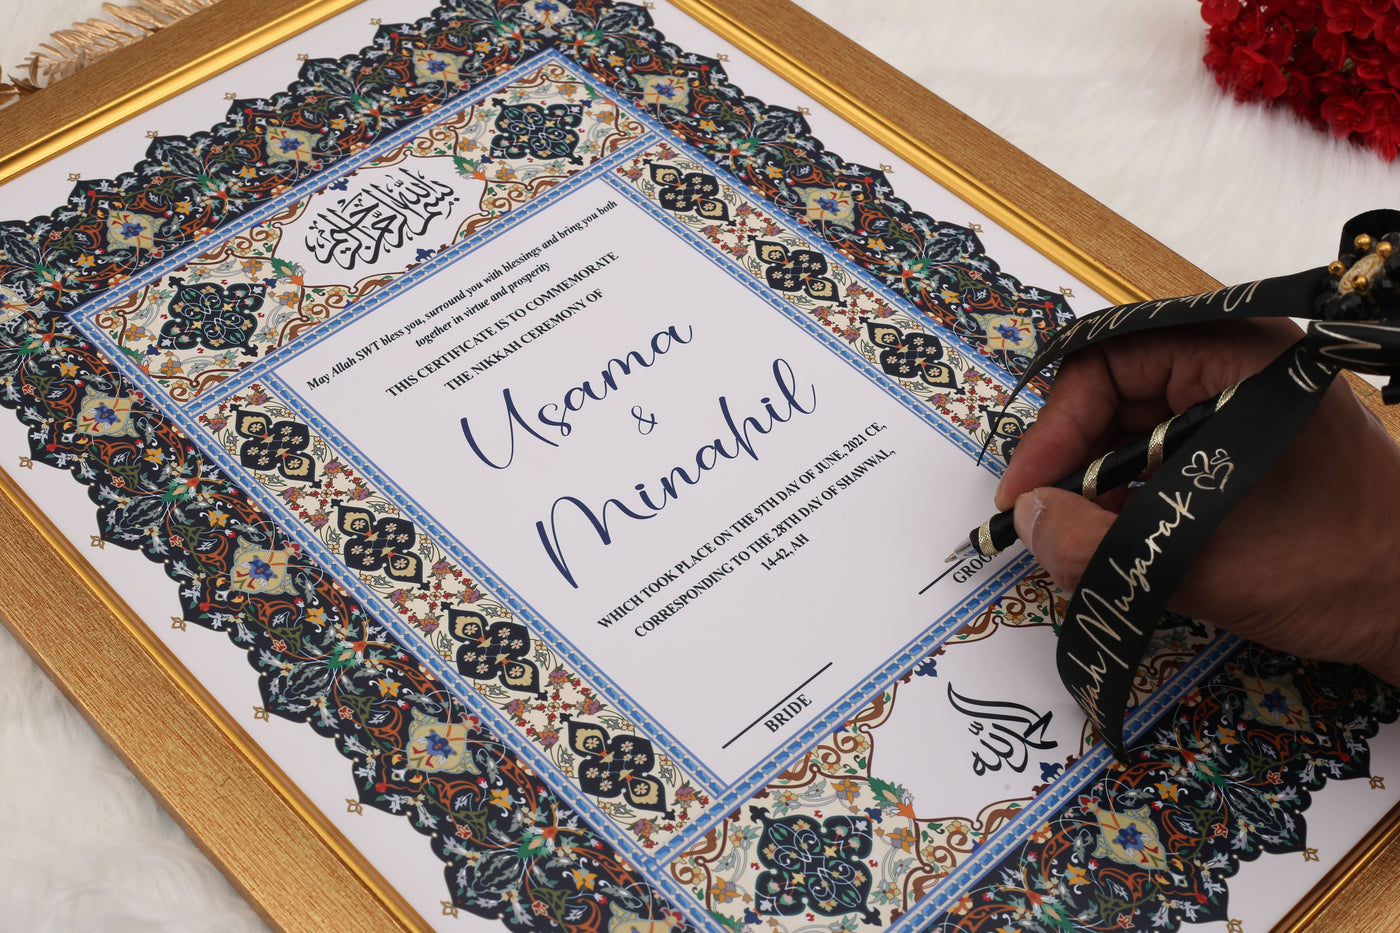 بسم الله الرحمن الرحيم
May Allah SWT bless you, surround you with blessings and bring you both
together in virtue and prosperity
THIS CERTIFICATE IS TO COMMEMORATE
THE NIKKAH CEREMONY OF
Usama
&
Minahil
WHICH TOOK PLACE ON THE 9TH DAY OF JUNE, 2021 CE,
CORRESPONDING TO THE 28TH DAY OF SHAWWAL,
1442, AH
BRIDE
الحمد لله
Mubarak